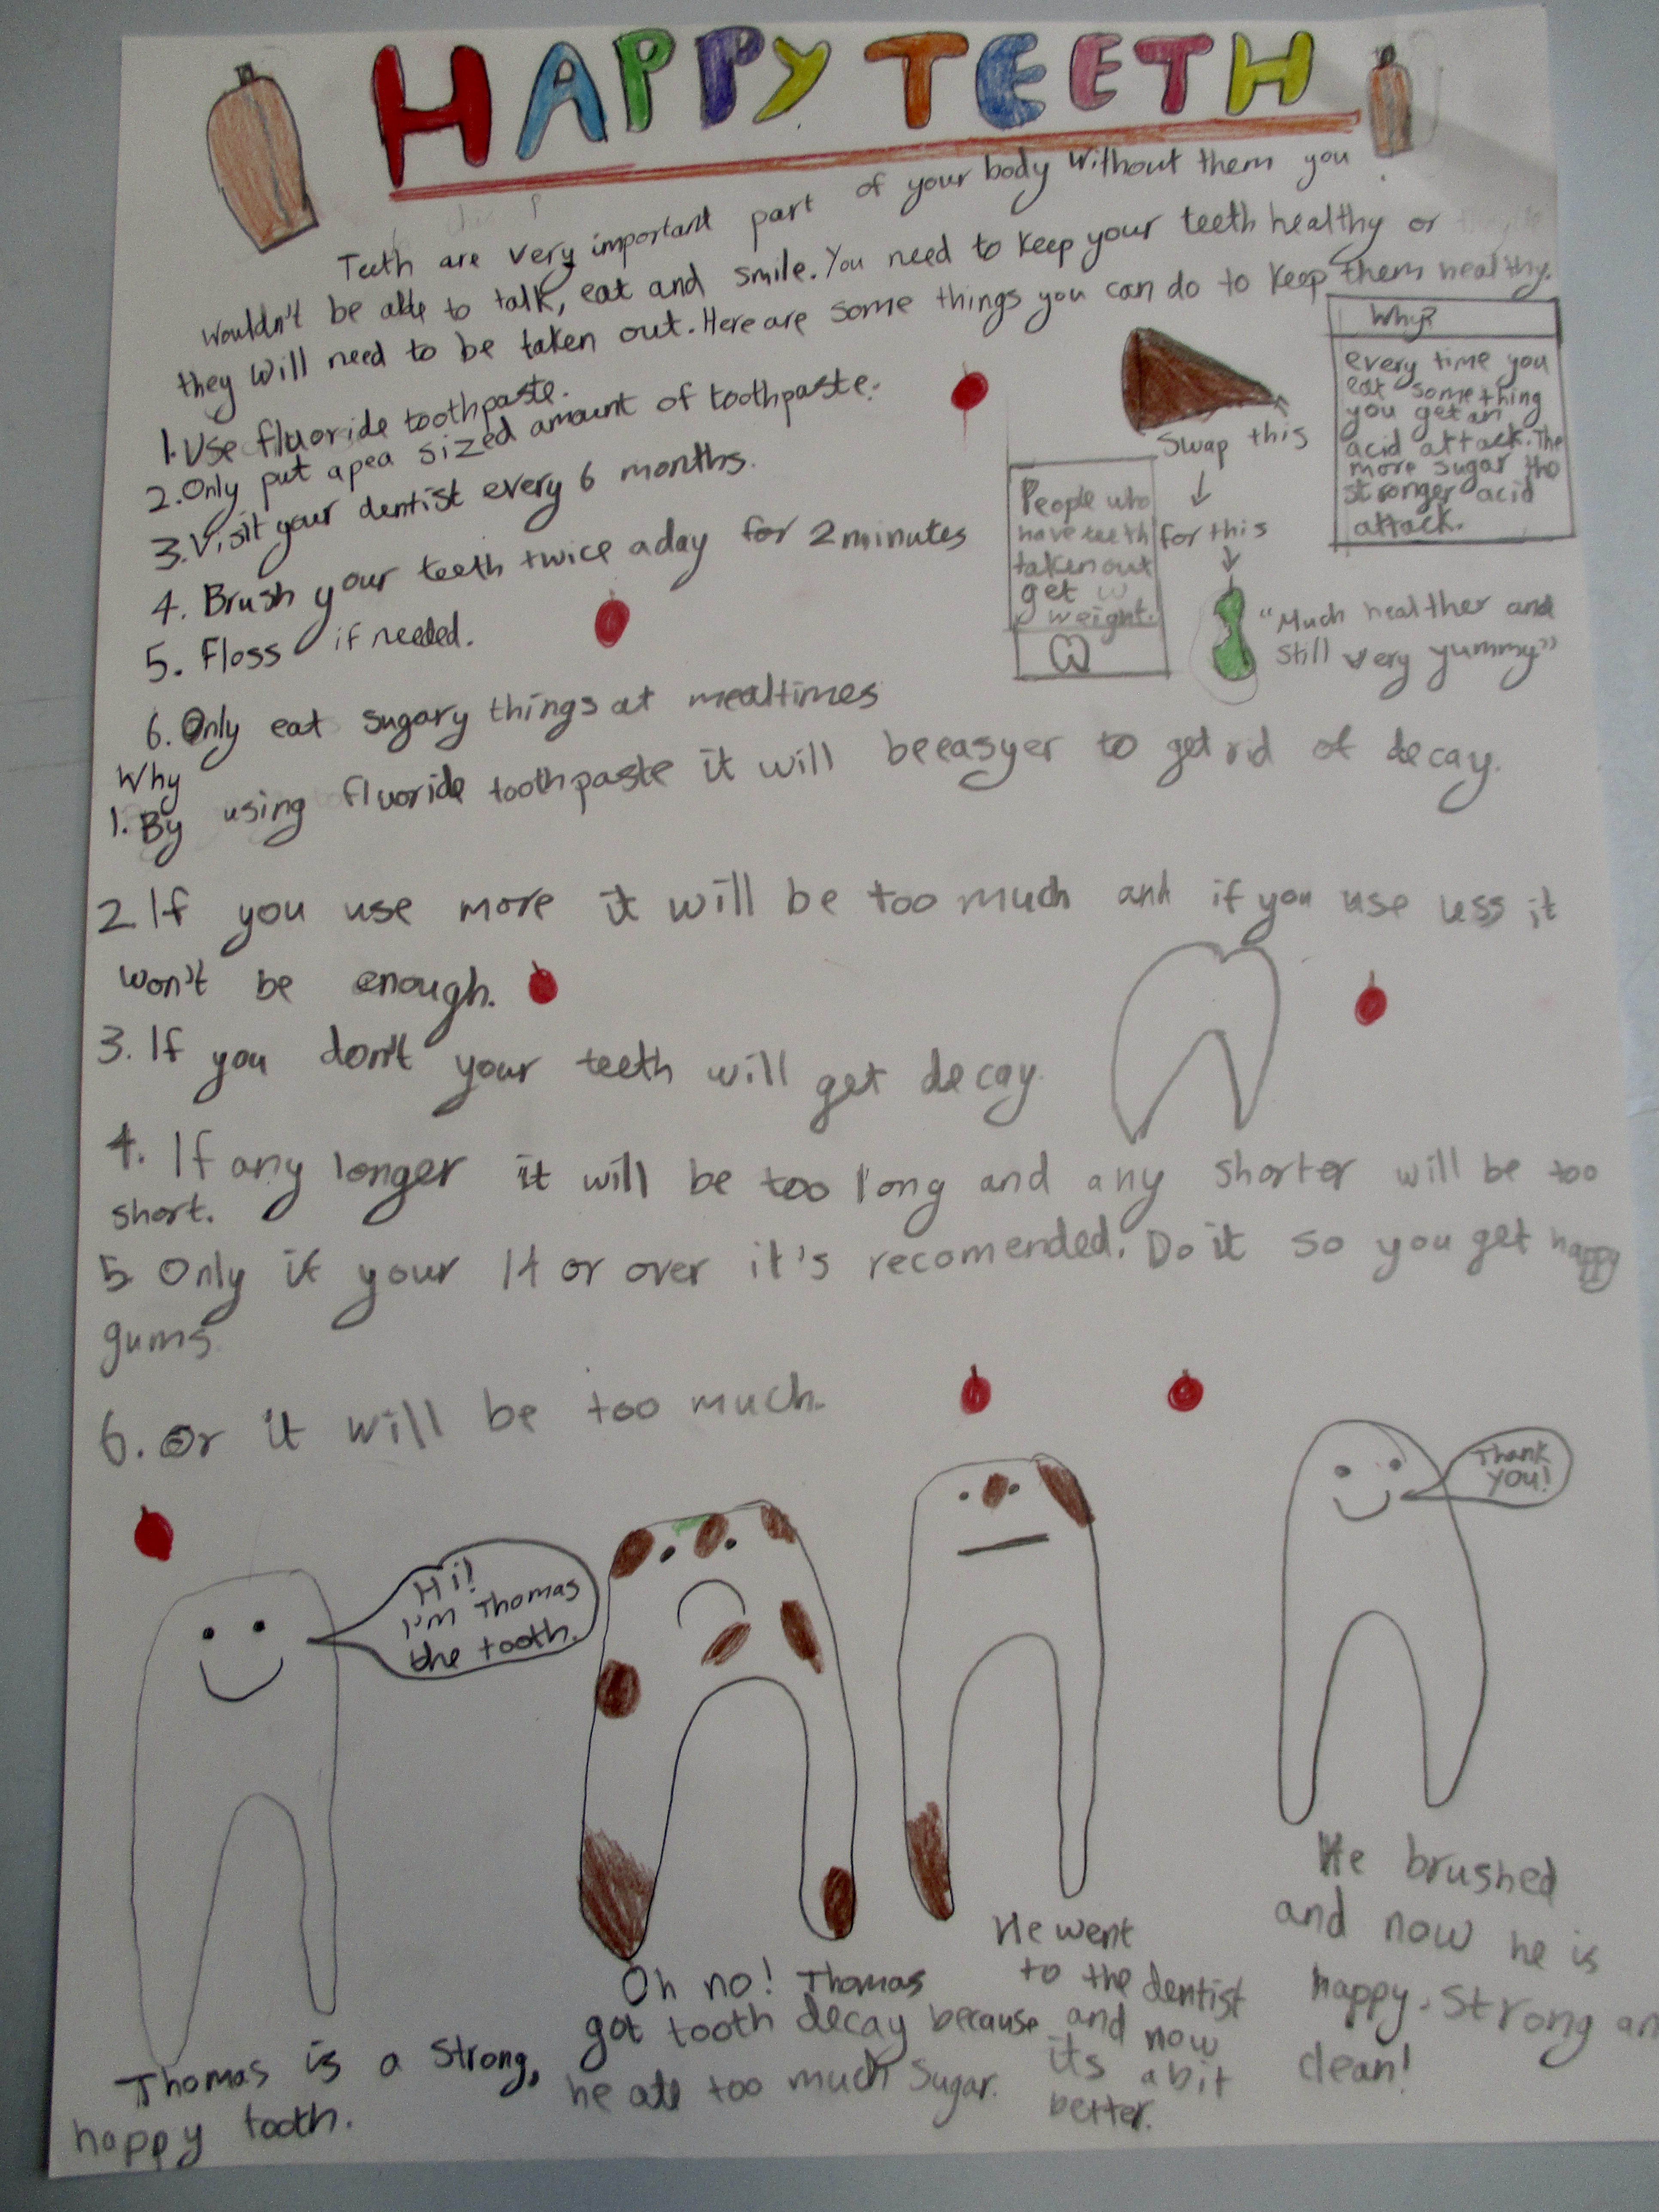 HAPPY TEETH
Teeth are very important part of your body Without them you
wouldn't be able to talk, eat and smile. You need to keep your teeth healthy or
they will need to be taken out. Here are some things you can do to keep them healthy.
1. Use fluoride toothpaste.
2. Only put a pea sized amount of toothpaste.
3. Visit your dentist every 6 months.
4. Brush your teeth twice a day for 2 minutes
5. Floss if needed.
6. Only eat sugary things at mealtimes
Swap this
for this
"Much healther and
still very yummy"
Why?
every time you
eat something
you get an
acid attack. The
more sugar the
stronger acid
attack.
People who
have teeth
taken out
get
weight.
Why
1. By using fluoride toothpaste it will be easyer to get rid of decay.
2. If you use more it will be too much and if you use less it
won't be enough.
3. If you don't your teeth will get decay.
4. If any longer it will be too long and any shorter will be too
short.
5 Only if your 14 or over it's recomended. Do it so you get happy
gums.
6. Or it will be too much.
Hi!
I'm Thomas
the tooth.
Thank
you!
Thomas is a strong,
happy tooth.
Oh no! Thomas
got tooth decay because
he ate too much sugar.
He went
to the dentist
and now
its a bit
better.
He brushed
and now he is
happy. Strong an
clean!